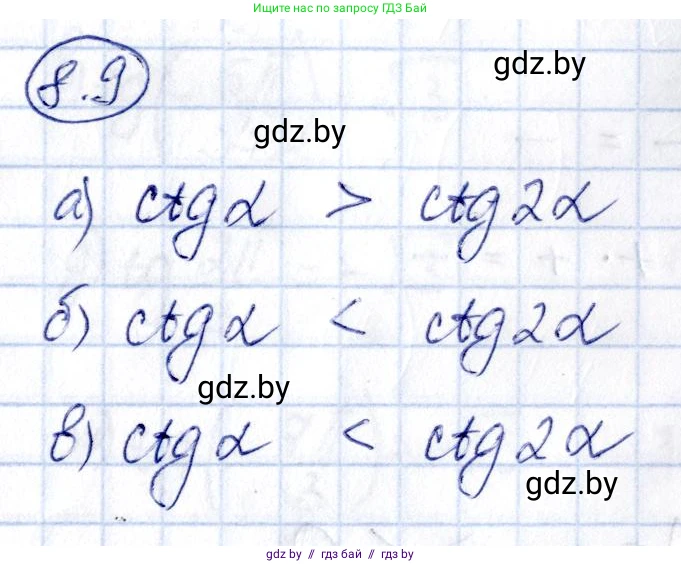 Ищите нас по запросу ГДЗ Бай
8.9
gdz.by
gdz.by
а) ctg α > ctg 2α
б) ctg α < ctg 2α
gdz.by
в) ctg α < ctg 2α
gdz.by
gdz by // гдз бай // гдз by